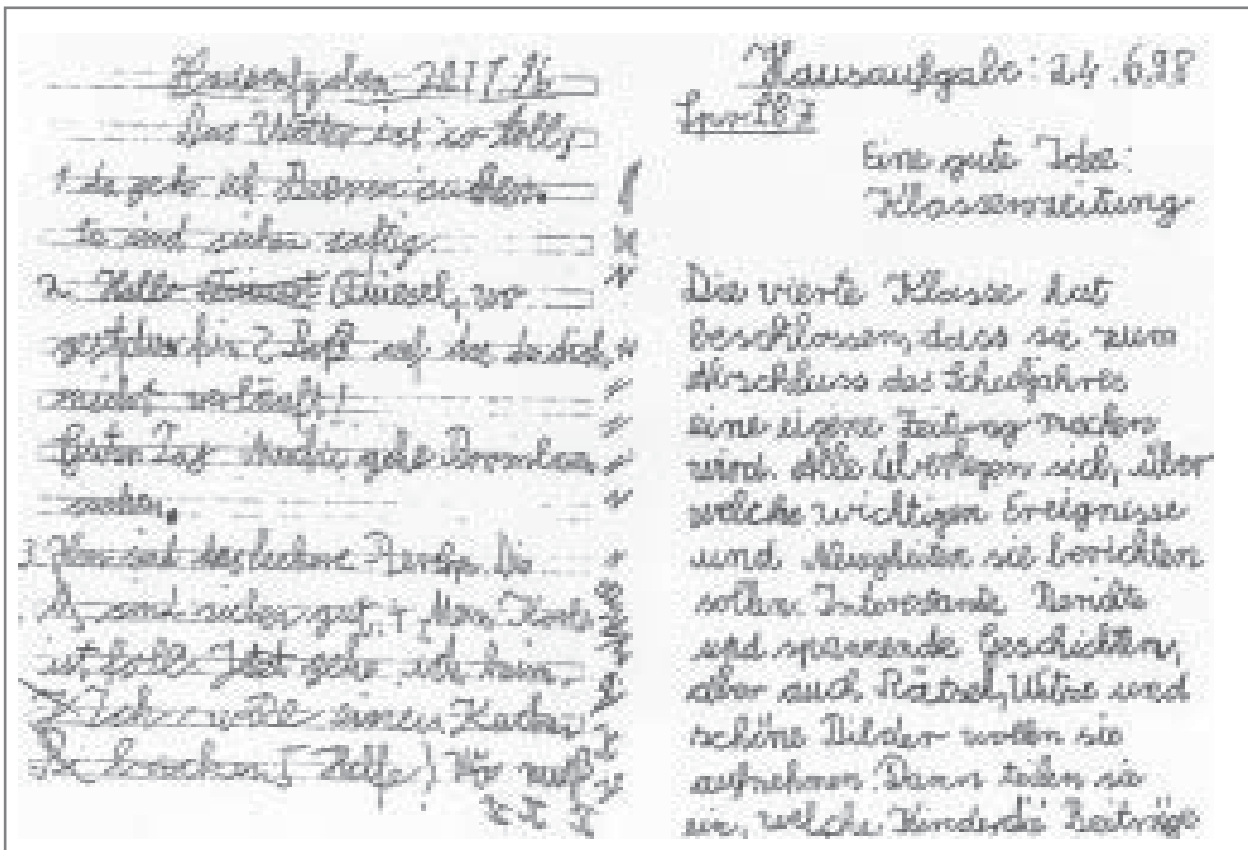 Hausaufgaben
Das Wetter ist so toll
1. da gehe ich Beeren suchen
sind sicher saftig
2. Hallo Friesel, wo
gehst du hin? Paß auf das du dich
nicht verläufst!
Guten Tag gehe Brombeer
suchen.
3. sind das leckere Die
sind sicher gut. Mein Korb
ist voll. Jetzt gehe ich heim.
Ich will einen Kuchen
backen Hilfe! Wo muß
Hausaufgabe: 24.6.98
Spr. S. 87
Eine gute Idee:
Klassenzeitung
Die vierte Klasse hat
beschlossen, dass sie zum
Abschluss des Schuljahres
eine eigene Zeitung machen
wird. Alle überlegen sich, über
welche wichtigen Ereignisse
und Neuigkeiten sie berichten
sollen. Interessante Berichte
und spannende Geschichten,
aber auch Rätsel, Witze und
schöne Bilder wollen sie
aufnehmen. Dann teilen sie
ein, welche Kinder die Beiträge